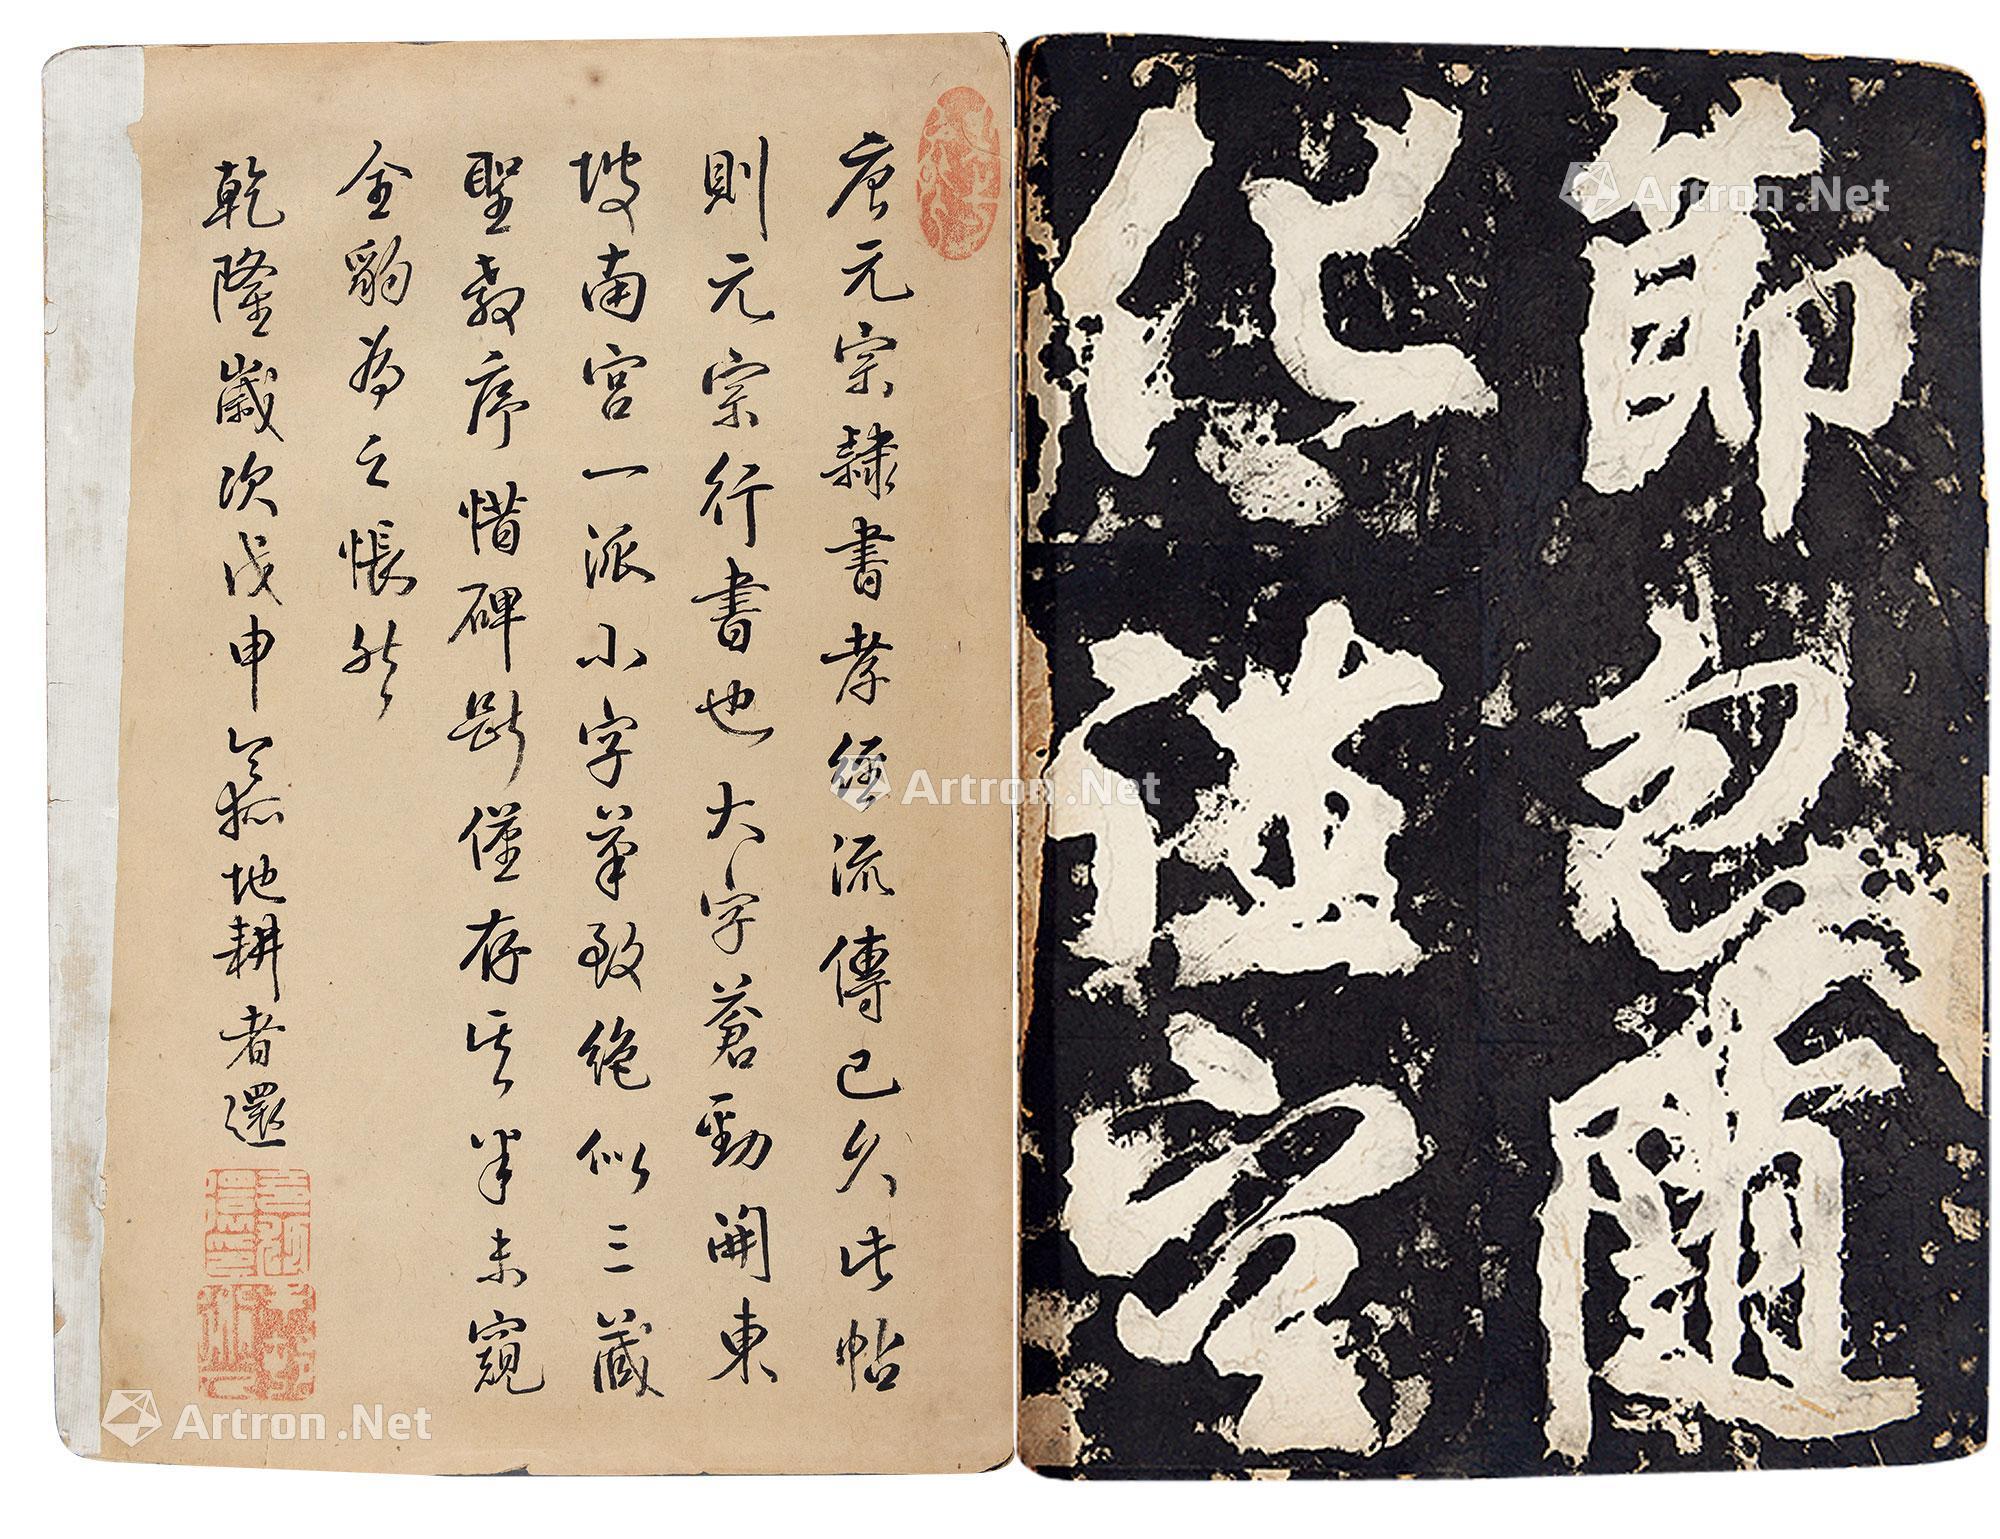 節忽隨
化往
唐元宗隸書孝經流傳已久此帖
則元宗行書也大字蒼勁開東
坡南宮一派小字筆致絕似三藏
聖教序惜碑斷僅存其半未窺
全豹為之悵然
乾隆歲次戊申令狐地耕者還
Artron.Net
Artron.Net
Artron.Net